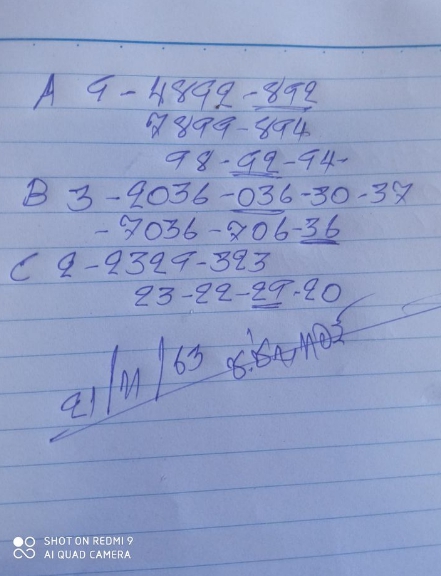 A 9 - 4892 - 892
7899 - 894
98 - 92 - 94-
B 3 - 2036 - 036 - 30 - 37
- 7036 - 706 - 36
C 2 - 2329 - 323
23 - 22 - 29 - 20
21/11/63
SHOT ON REDMI 9
AI QUAD CAMERA